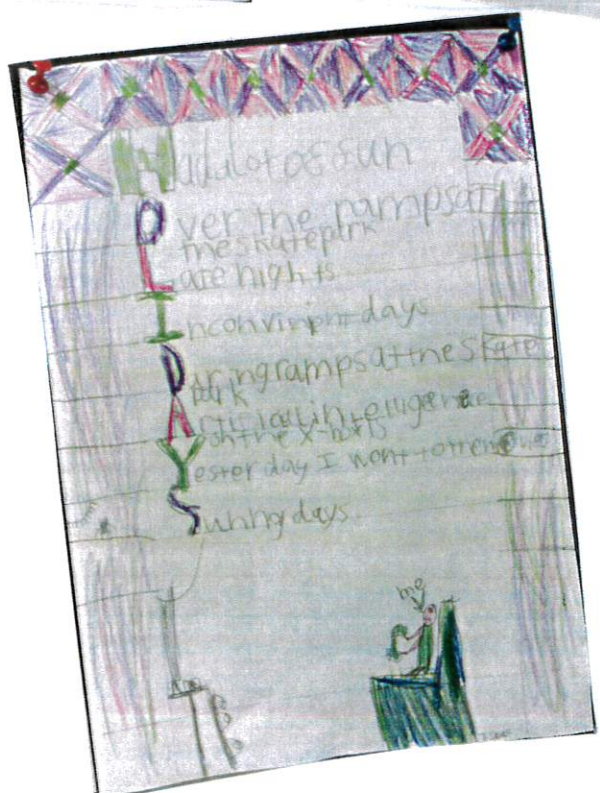 Hadalot of fun
Over the rampsat
the skatepark
Late nights
Inconvinint days
Daring ramps at the skate
park
Artificial intelligence
on the x-box
Yesterday I went to the
Sunny days
me